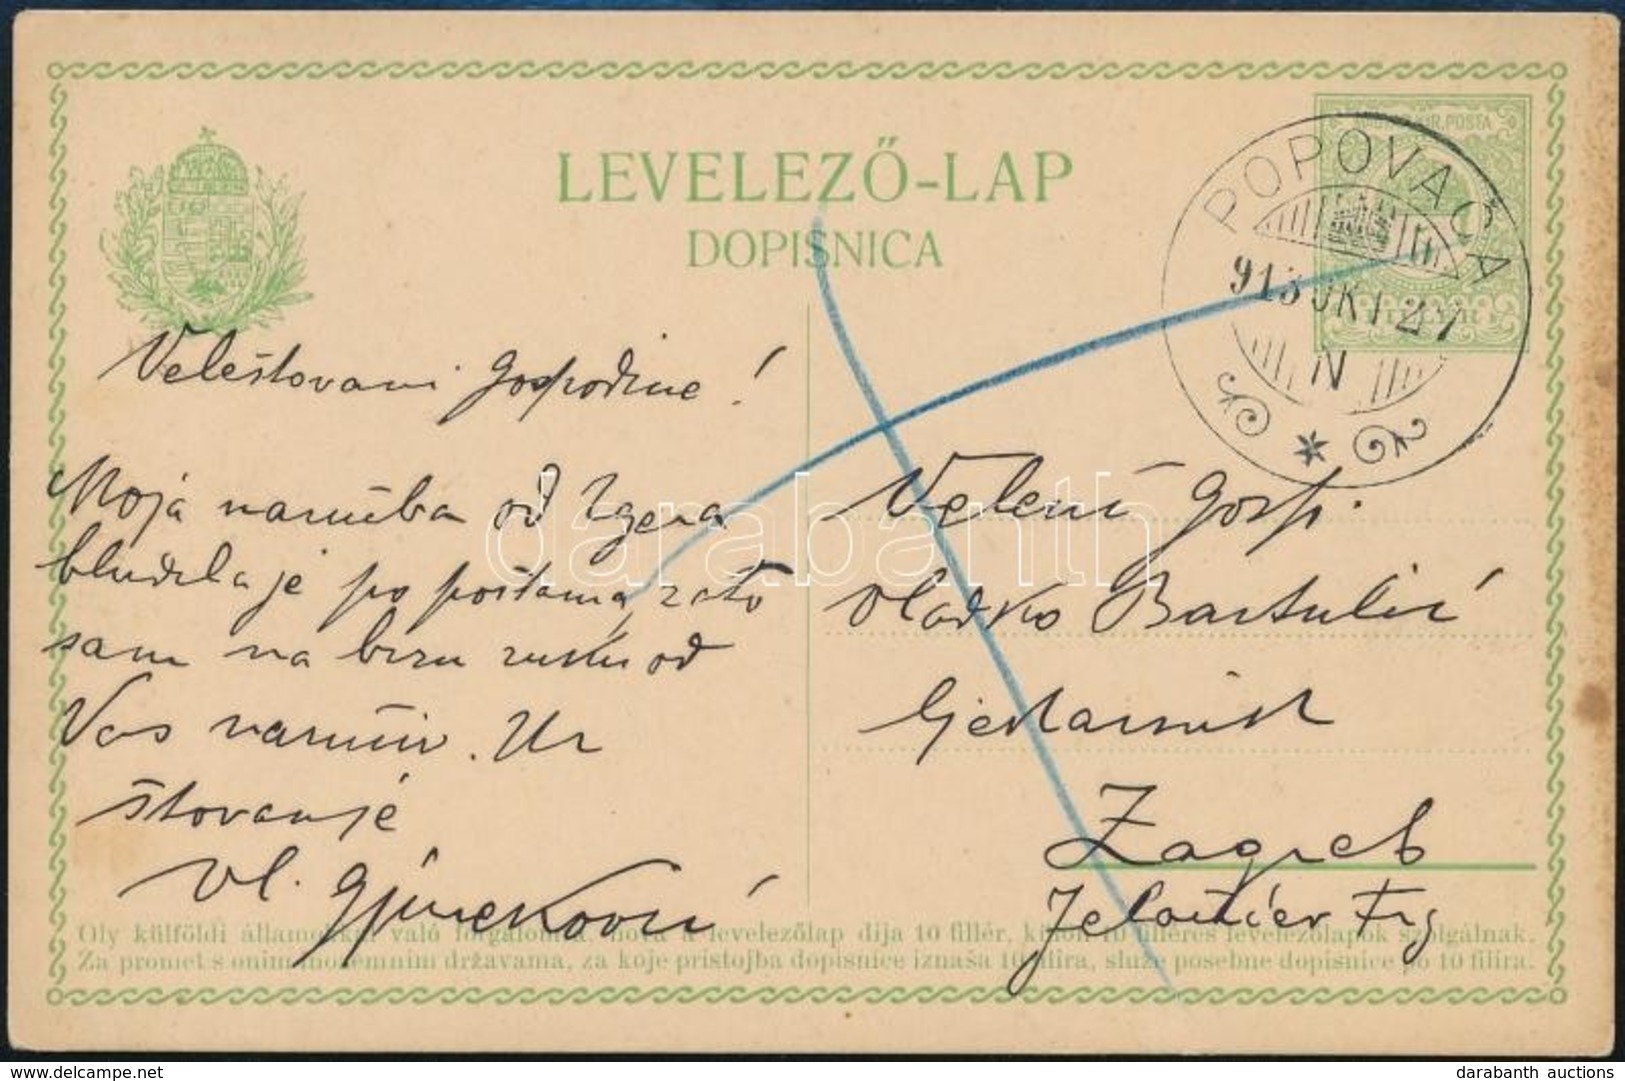 LEVELEZŐ-LAP
DOPISNICA
POPOVAČA
913 OKT 27
N
Veleštovani gospodine!
Moja narudžba od
bludila je po poštama, zato
sam na brzu ruku od
Vas naručio. Uz
štovanje
Vl. Gjureković
Velecij. gosp.
Vladko Bartulić
ljekarnik
Zagreb
Jelačićev trg
Oly külföldi államokkal való forgalomra, hová a levelezőlap díja 10 fillér, külön 10 filléres levelezőlapok szolgálnak.
Za promet s onim inozemnim državama, za koje pristojba dopisnice iznaša 10 filira, služe posebne dopisnice po 10 filira.
darabanth
darabanth auctions